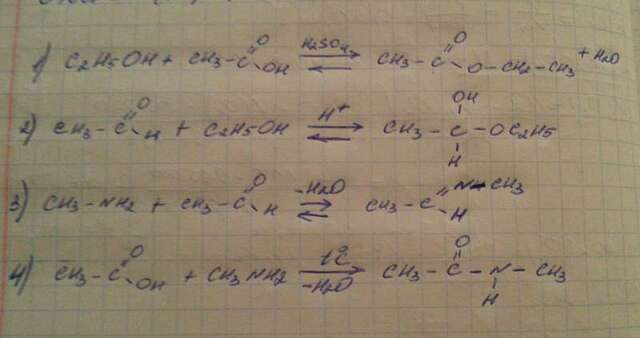 1) C2H5OH + CH3-C(=O)-OH ⇄ (H2SO4) CH3-C(=O)-O-CH2-CH3 + H2O
2) CH3-C(=O)-H + C2H5OH ⇄ (H+) CH3-C(OH)(H)-OC2H5
3) CH3-NH2 + CH3-C(=O)-H ⇄ (-H2O) CH3-C(=N-CH3)-H
4) CH3-C(=O)-OH + CH3NH2 → (t°C, -H2O) CH3-C(=O)-N(H)-CH3